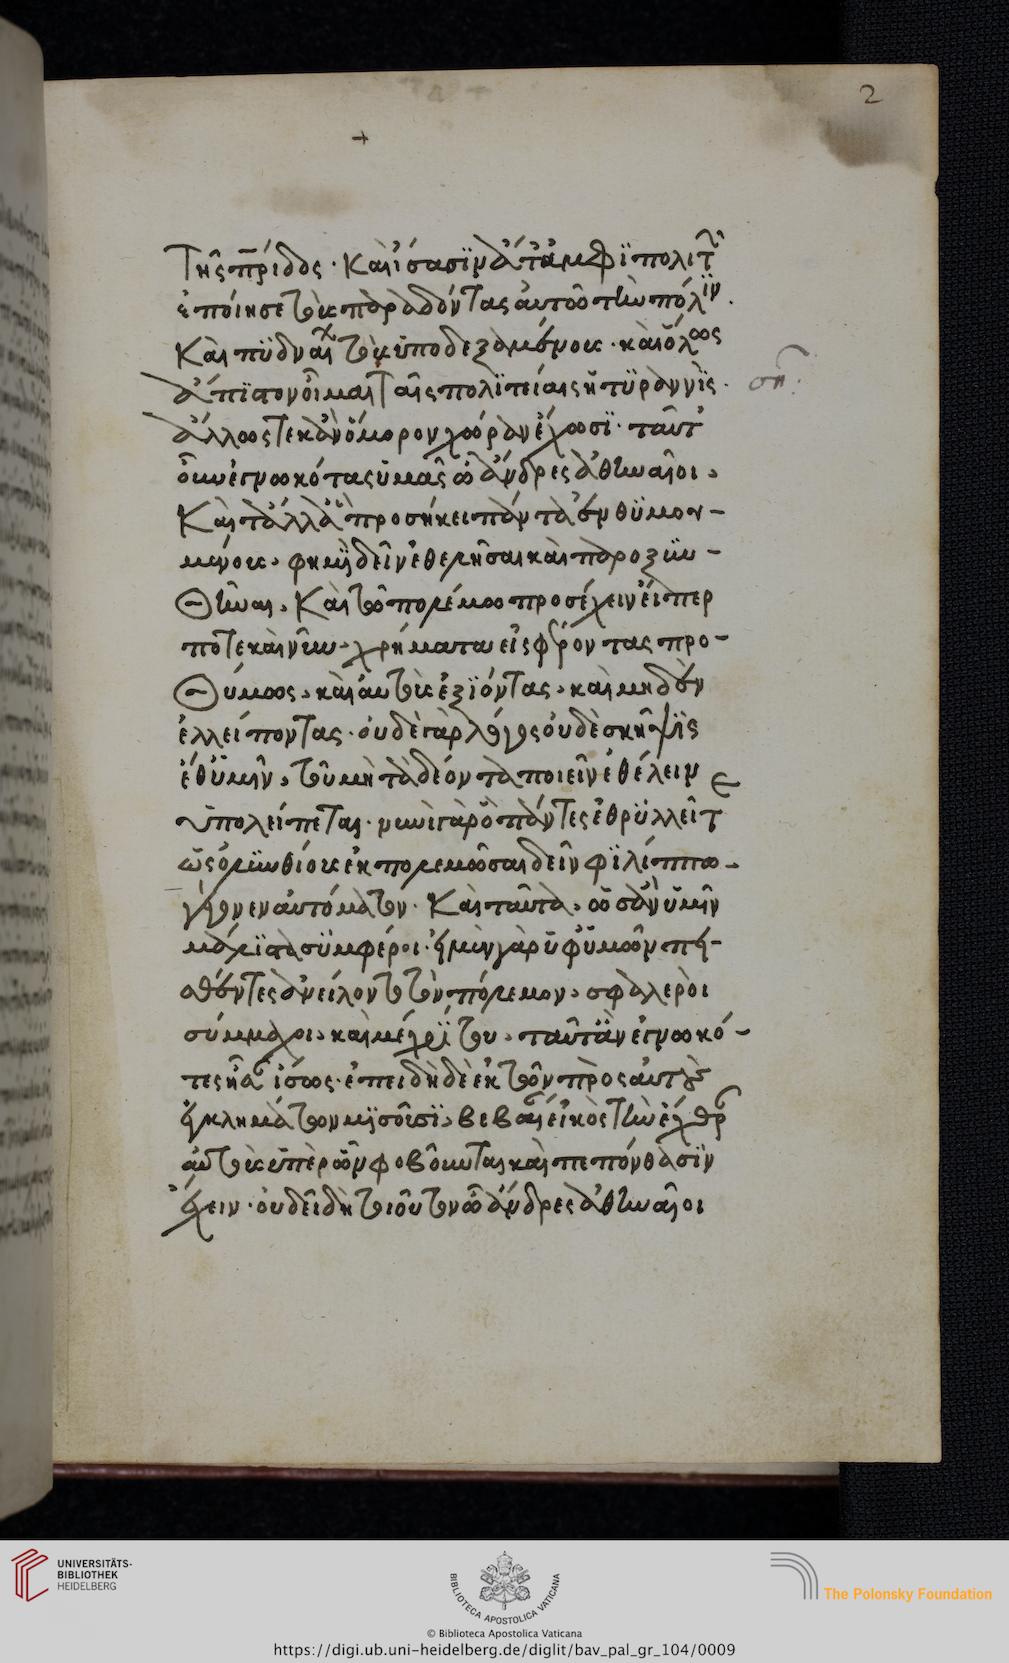 2
+
τῆς πρίδος · καὶ ἴσασιν ἅ τ' ἀμφιπολιτ
ἐποίησε τοὺς παραδόντας αὐτῶ τὴν πόλιν .
καὶ πυδναι τοὺς ὑποδεξαμένους · καὶ ὅλως
ἄπιστον οἶμαι ταῖς πολιτείαις ἡ τυραννὶς · ση:
ἄλλως τε κἂν ὅμορον χώραν ἔχωσι · ταῦτ'
οὖν ἐγνωκότας ὑμᾶς ὦ ἄνδρες ἀθηναῖοι ,
καὶ τἄλλα ἃ προσήκει πάντα ἐνθυμου-
μένους , φημὶ δεῖν ἐθελῆσαι καὶ παροξυν-
θῆναι , καὶ τῶ πολέμω προσέχειν εἴπερ
ποτὲ καὶ νῦν , χρήματα εἰσφέροντας προ-
θύμως , καὶ αὐτοὺς ἐξιόντας , καὶ μηδὲν
ἐλλείποντας · οὐδὲ γὰρ λόγος οὐδὲ σκῆψις
ἔθ' ὑμῖν , τοῦ μὴ τὰ δέοντα ποιεῖν ἐθέλειν
ὑπολείπεται · νυνὶ γὰρ ὃ πάντες ἐθρυλλεῖτ
ὡς ὀλυνθίους ἐκπολεμῶσαι δεῖν φιλίππω-
γέγονεν αὐτόματον · καὶ ταῦτα , ὡς ἂν ὑμῖν
μάλιστα συμφέροι · εἰ μὲν γὰρ ὑφ' ὑμῶν πει-
σθέντες ἀνείλοντο τὸν πόλεμον , σφαλεροὶ
σύμμαχοι , καὶ μέχρι του , ταῦτ' ἂν ἐγνωκό-
τες ἦσαν ἴσως · ἐπειδὴ δὲ ἐκ τῶν πρὸς αὐτοὺς
ἐγκλημάτων μισοῦσι , βεβαίαν εἰκὸς τὴν ἔχθρ
αὐτοὺς ὑπὲρ ὧν φοβοῦνται καὶ πεπόνθασιν
ἔχειν · οὐ δεῖ δὴ τοιοῦτον ὦ ἄνδρες ἀθηναῖοι
UNIVERSITÄTS-
BIBLIOTHEK
HEIDELBERG
BIBLIOTECA APOSTOLICA VATICANA
The Polonsky Foundation
© Biblioteca Apostolica Vaticana
https://digi.ub.uni-heidelberg.de/diglit/bav_pal_gr_104/0009